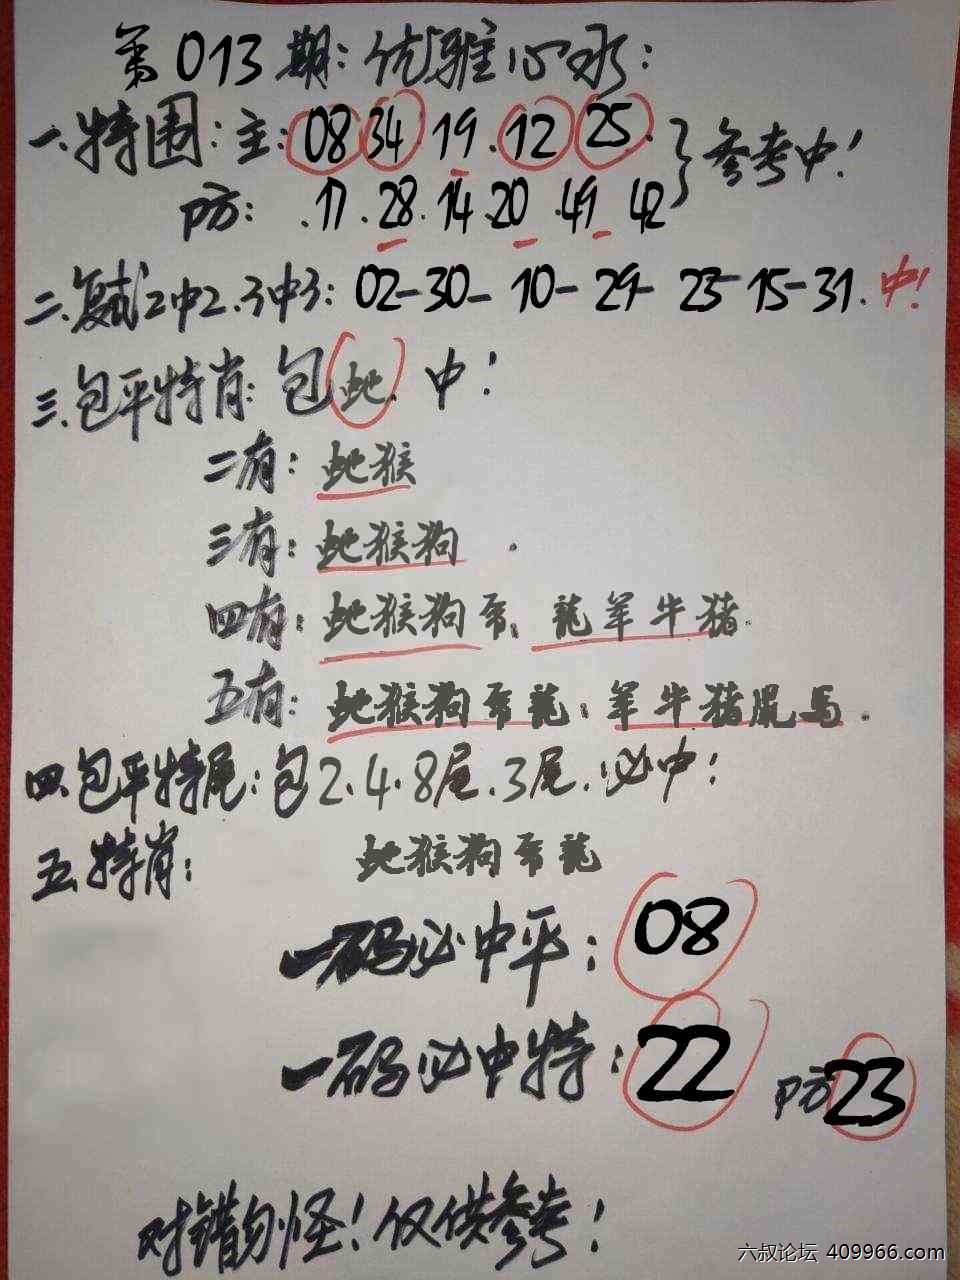 第013期:优雅心水:
一.特围:主:08 34.19.12 25.
}参考中!
防:.17.28.14.20.49 42
二.复试2中2.3中3:02-30-10-29-23-15-31.中!
三.包平特肖:包蛇.中!
二有:蛇猴
三有:蛇猴狗.
四有:蛇猴狗 龍羊牛猪.
五有:蛇猴狗 龍:羊牛猪鼠马.
四.包平特尾:包2.4.8尾.3尾.必中!
五.特肖: 蛇猴狗 龍
一码必中平:08
一码必中特:22 防23
对错勿怪!仅供参考!
六叔论坛 409966.com